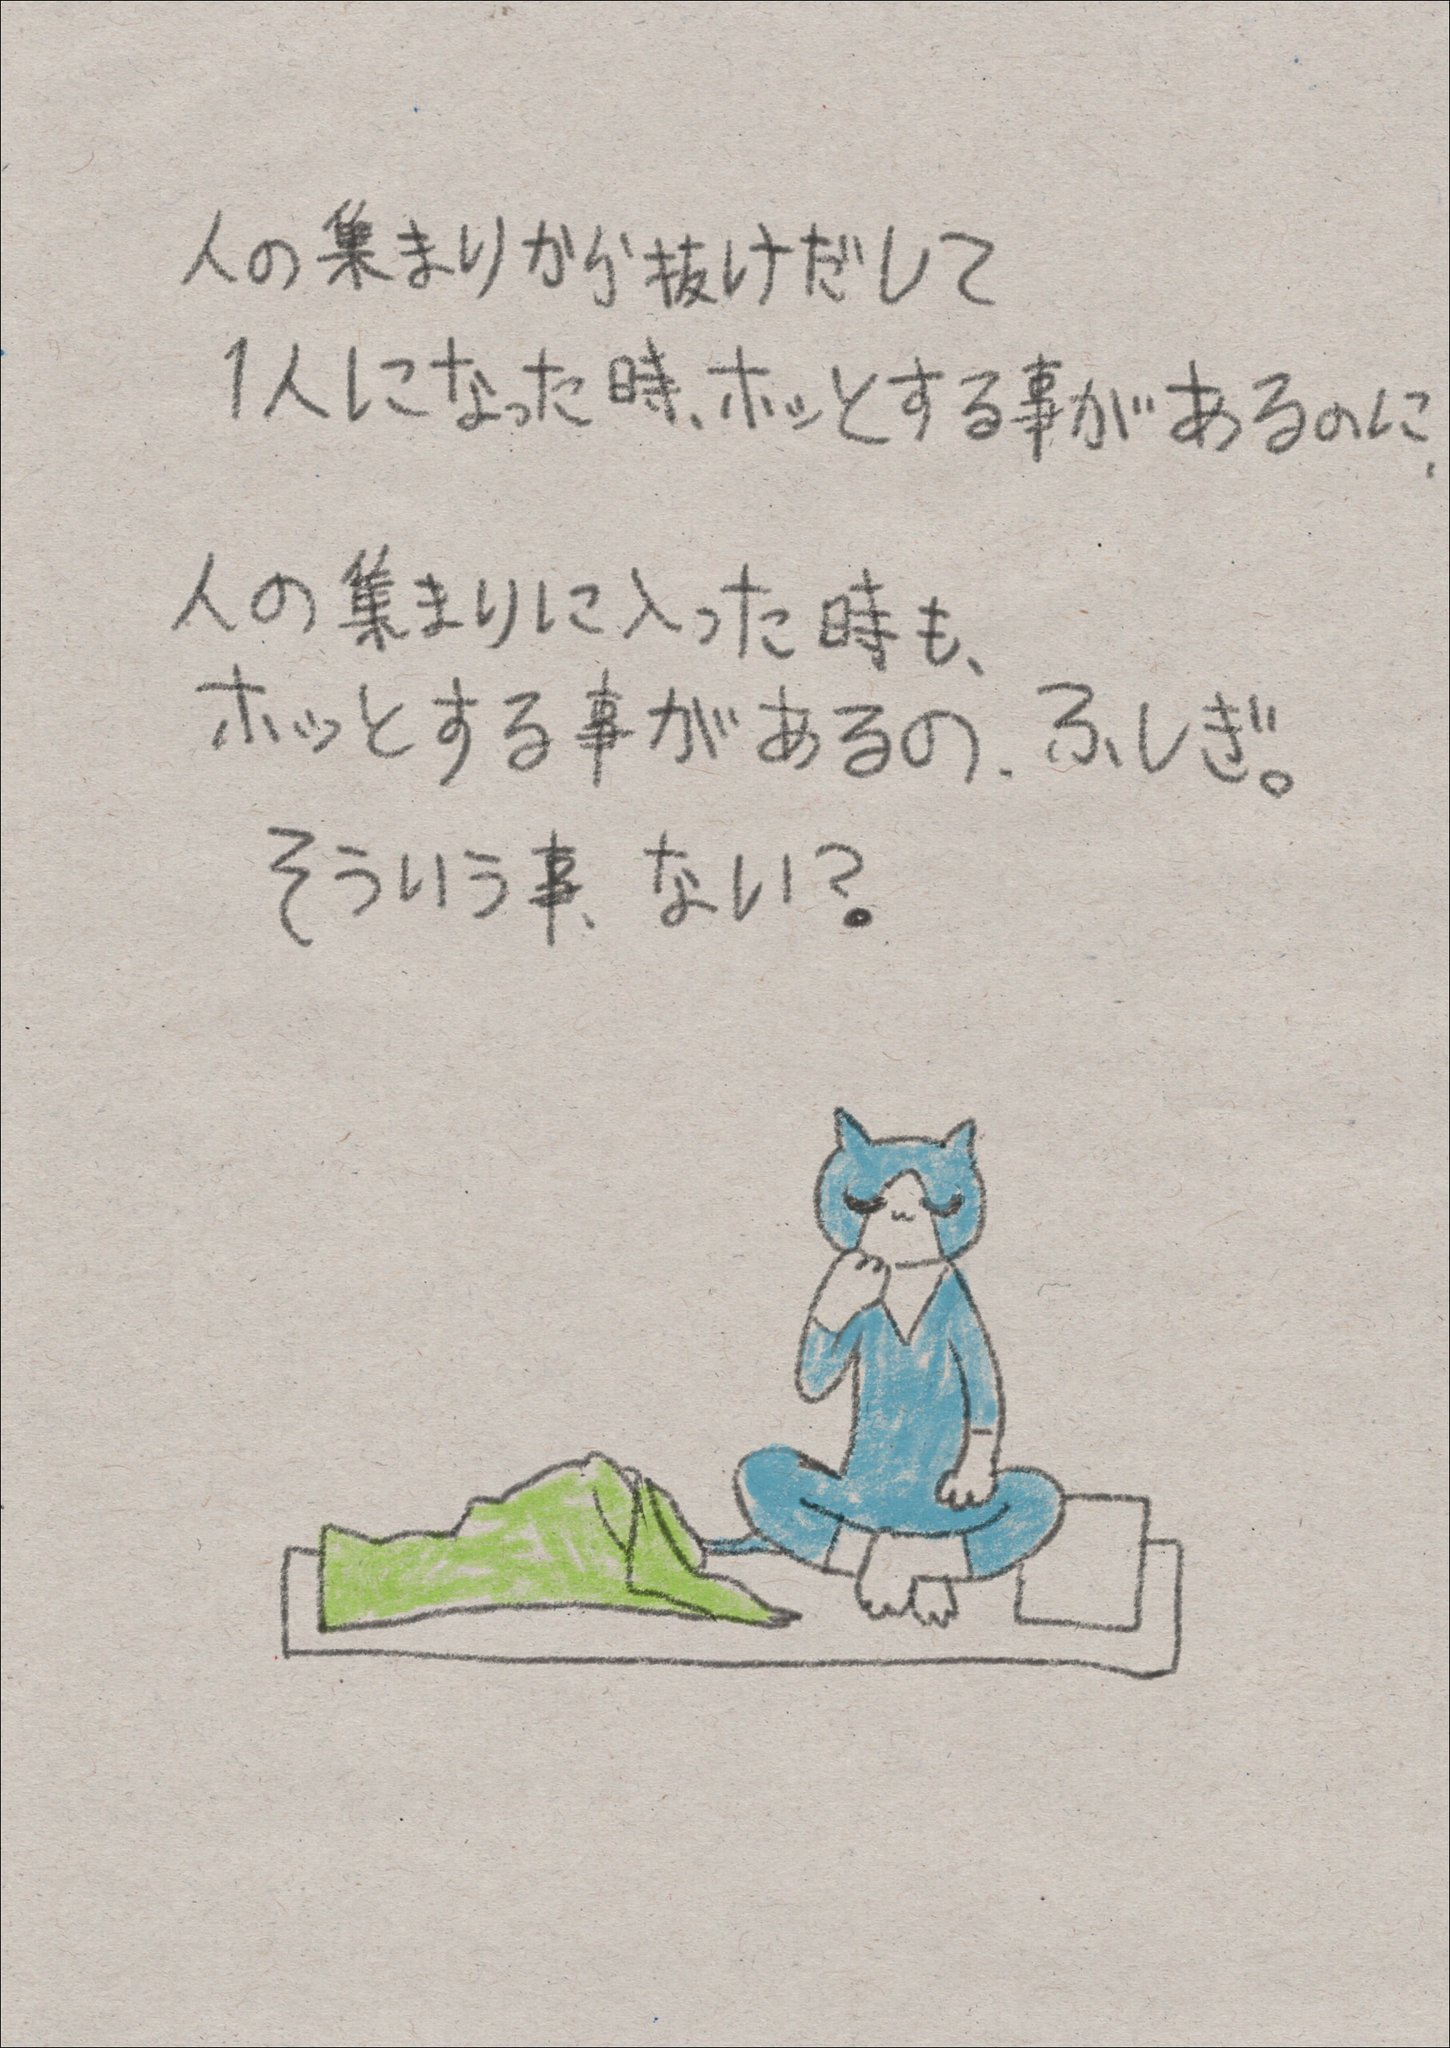 人の集まりから抜けだして
1人になった時、ホッとする事があるのに、
人の集まりに入った時も、
ホッとする事があるの、ふしぎ。
そういう事、ない?